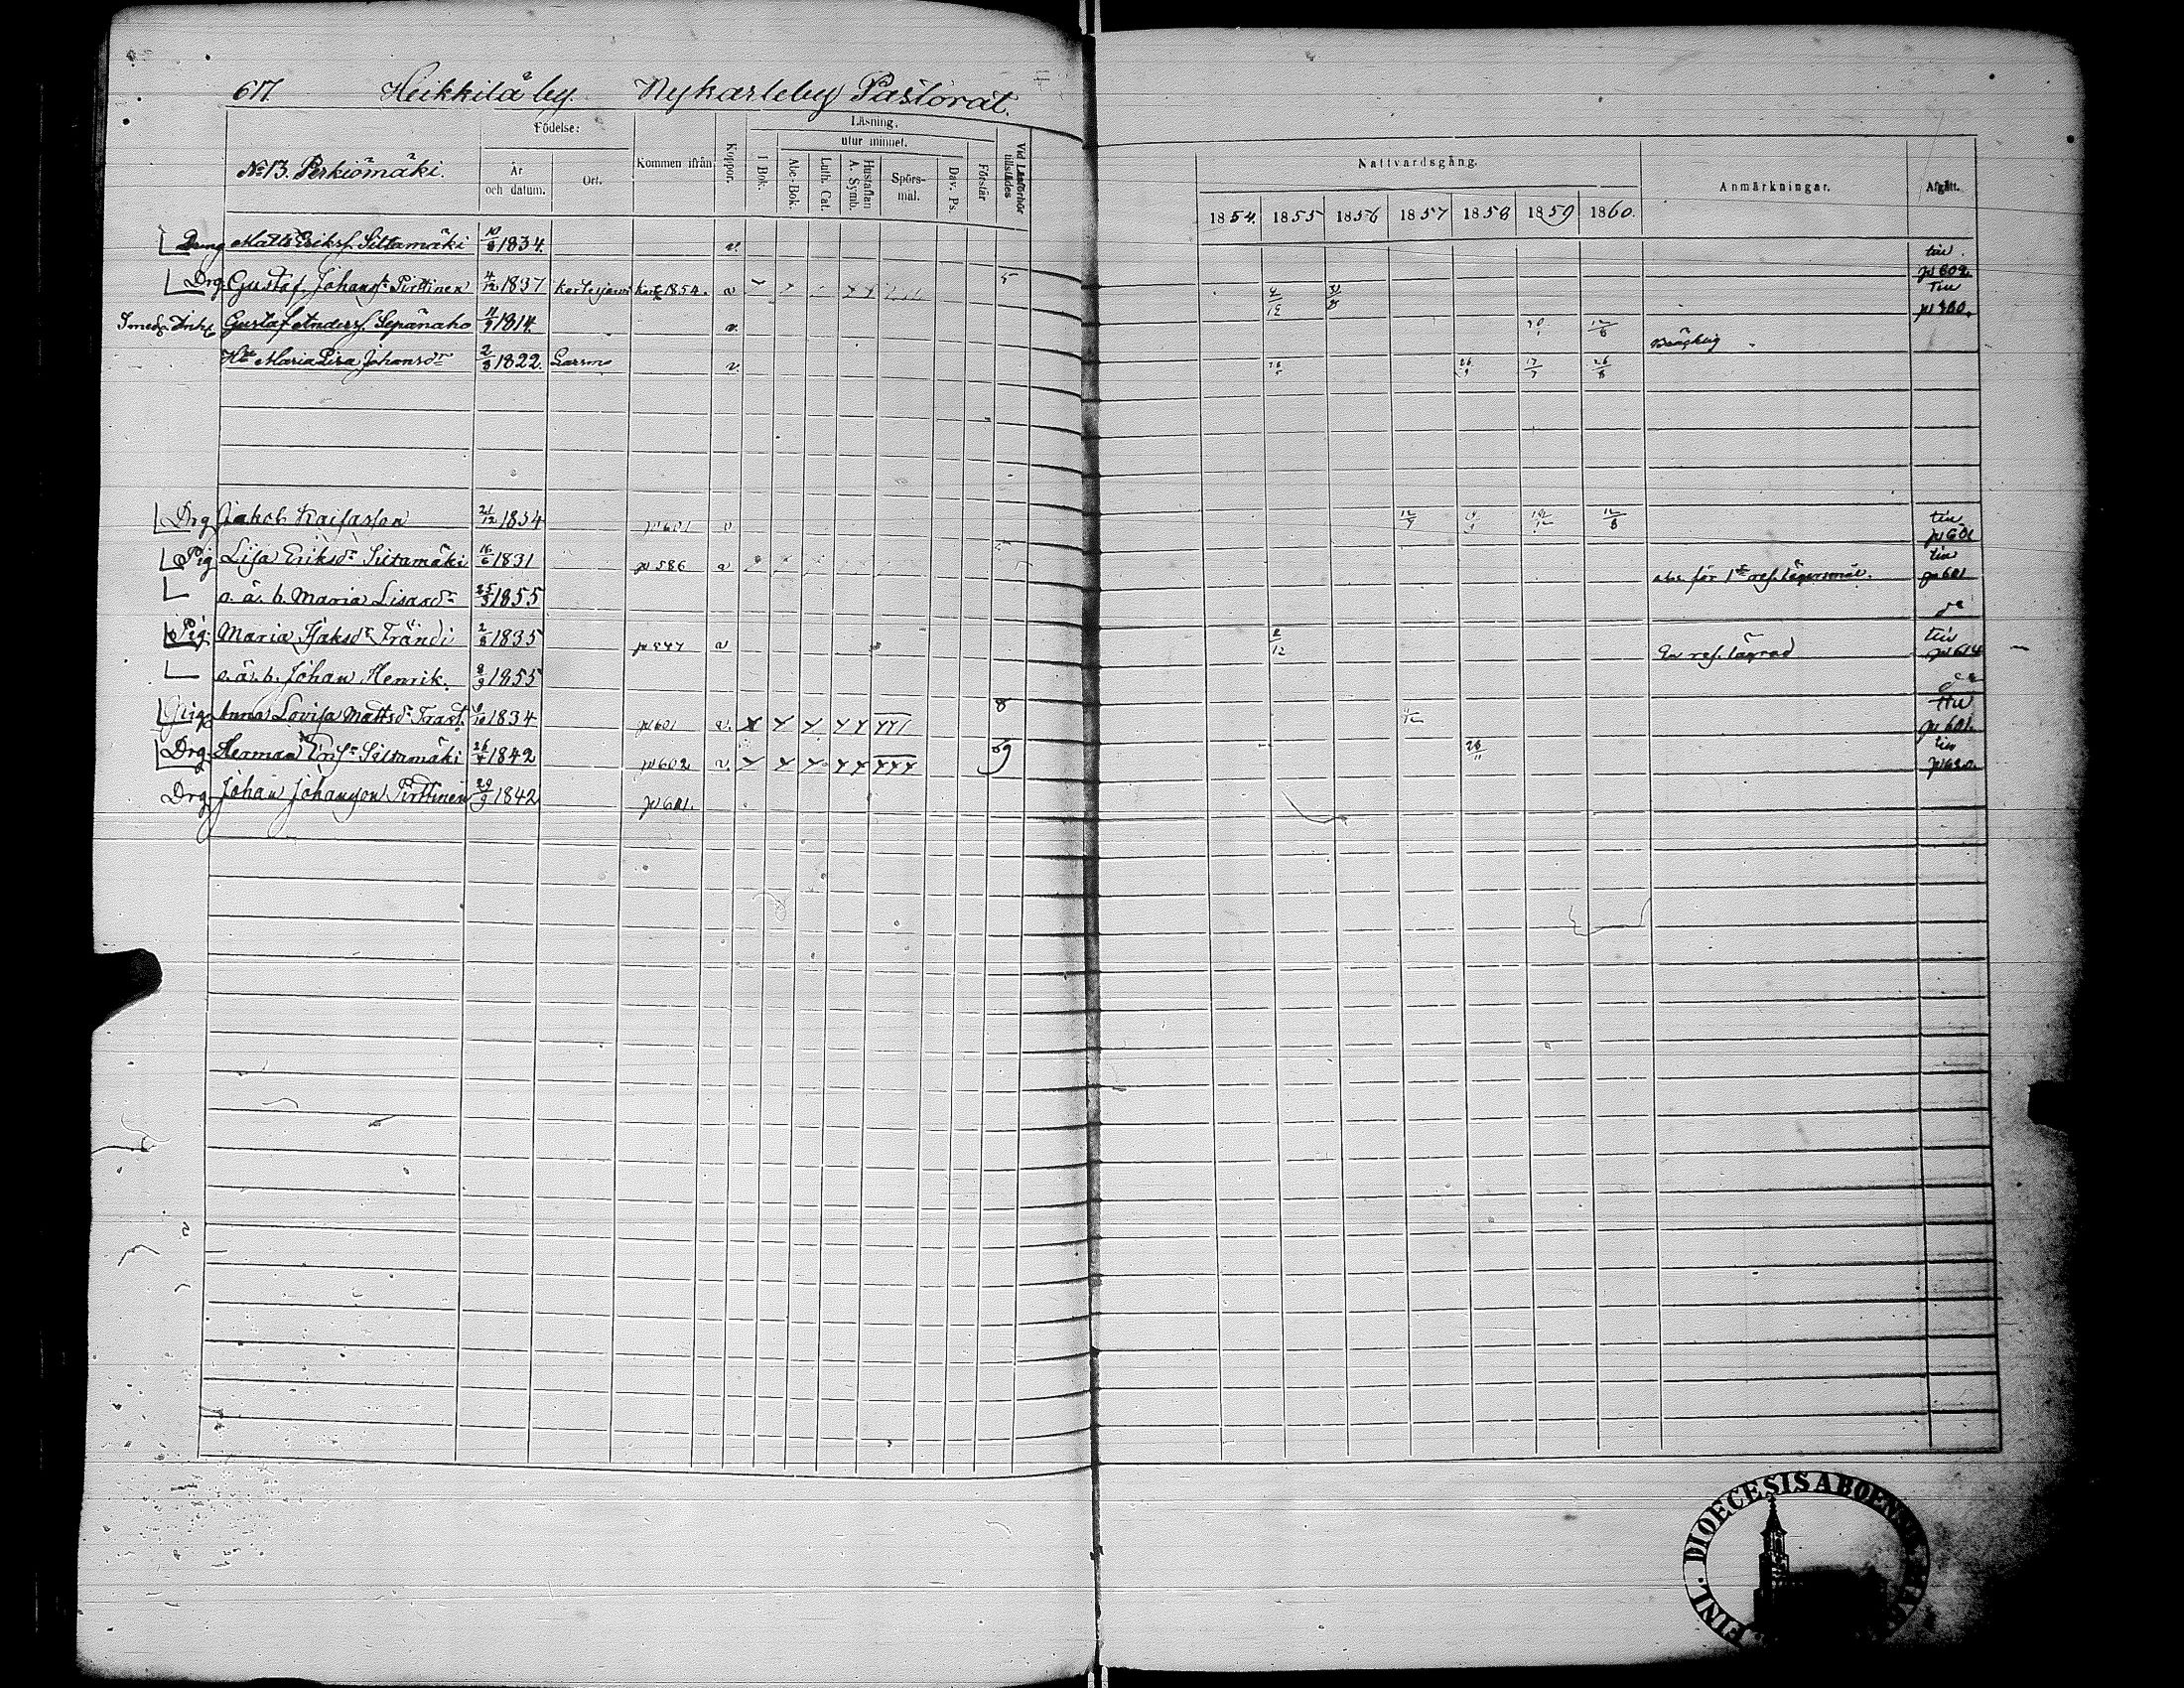 617. Heikkilä by. Nykarleby Pastorat.
No 13. Perkiömäki.
Födelse:
År och datum.
Ort.
Kommen ifrån
Koppor.
Läsning.
utur minnet.
I Bok.
Abc-Bok.
Luth. Cat.
Hustaflan A. Symb.
Spörsmål.
Dav. Ps.
Förstår
Vid Läsförhör tillstädes
Nattvardsgång.
1854. 1855 1856 1857 1858 1859 1860.
Anmärkningar.
Afgått.
Dräng Matts Eriks. Siltamäki 10/8 1834. v. tin p 602.
Drg. Gustaf Johans. Pirttinen 4/12 1837 Kortesjärvi 1854. v 5 Tin p 360.
Gustaf Anders. Sepänaho 1814. v. 12/8
Hu Maria Lisa Johansdr 2/8 1822. Larsmo v. 17/7 26/8
Drg Jakob Kaifasson 21/12 1834 p 601 v 12/7 12/8 tin p 601
Pig Lisa Eriksdr Siltamäki 16/6 1831 p 586 v abs. för 1sta ref. lägersmål. tin p 601
o. ä. b. Maria Lisasdr 25/3 1855 do
Pig. Maria Jaksdr Frändi 2/8 1835 p 547 v 2/12 En ref. lägrad tin p 614
o. ä. b. Johan Henrik. 8/9 1855 do
Pig. Anna Lovisa Mattsdr Trast. 1834 p 601 v. 8 tin p 601.
Drg Herman Eriks. Siltamäki 26/4 1842 p 602 v. 9 28/11 tin p 620.
Drg Johan Johansson Pirttinen 29/9 1842 p 601.
FINL. DIOECESIS ABOENSIS